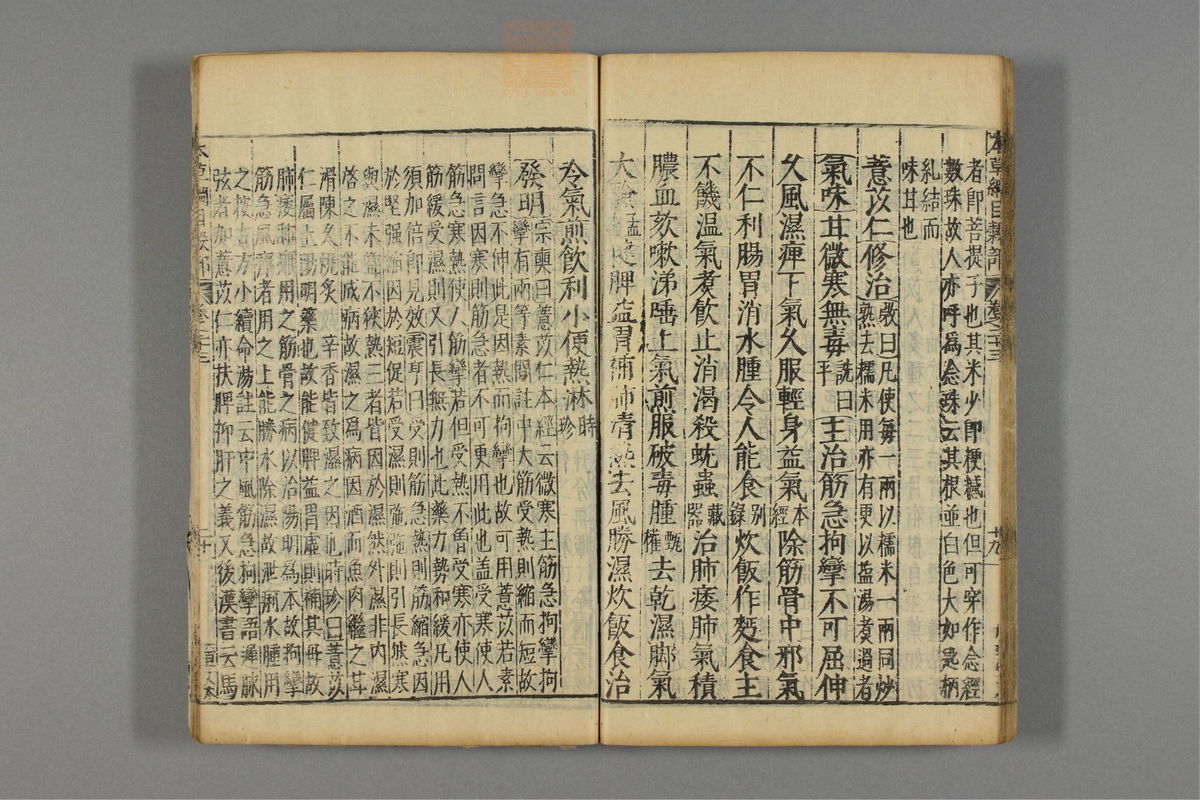 本草綱目穀部 卷之二十三 十九
者即菩提子也其米少即粳𥽘也但可穿作念經
數珠故人亦呼為念珠云其根並白色大如匙柄
糺結而
味甘也
薏苡仁修治 斆曰凡使每一兩以糯米一兩同炒
熟去糯米用亦有更以盐湯煮過者
氣味甘微寒無毒 詵曰平 主治筋急拘攣不可屈伸
久風濕痺下氣久服輕身益氣 本經 除筋骨中邪氣
不仁利腸胃消水腫令人能食 别錄 炊飯作麪食主
不饑溫氣煮飲止消渴殺蚘蟲 藏器 治肺痿肺氣積
膿血欬嗽涕唾上氣煎服破毒腫 甄權 去乾濕脚氣
大驗 孟詵 健脾益胃補肺清熱去風勝濕炊飯食治
冷氣煎飲利小便熱淋 時珍
發明 宗奭曰薏苡仁本經云微寒主筋急拘攣拘
攣有兩等素問註中大筋受熱則縮而短故
攣急不伸此是因熱而拘攣也故可用薏苡若素
問言因寒則筋急者不可更用此也盖受寒使人
筋急寒熱使人筋攣若但受熱不曾受寒亦使人
筋緩受濕則又引長無力也此藥力勢和緩凡用
須加倍即見效震亨曰寒則筋急熱則筋縮急因
於堅强縮因於短促若受濕則弛弛則引長然寒
與濕未嘗不挾熱三者皆因於濕然外濕非内濕
啓之不能成病故濕之為病因酒而魚肉繼之甘
滑陳久燒炙辛香皆致濕之因也時珍曰薏苡
仁屬土陽明藥也故能健脾益胃虛則補其母故
肺痿肺癰用之筋骨之病以治陽明為本故拘攣
筋急風痺者用之土能勝水除濕故泄痢水腫用
之按古方小續命湯註云中風筋急拘攣語遲脉
弦者加薏苡仁亦扶脾抑肝之義又後漢書云馬
本草綱目穀部 卷之二十三 二十